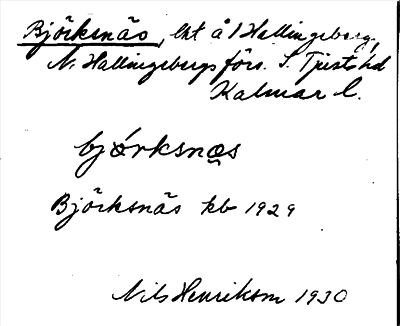 Björksnäs, lht å 1 Hallingeberg,
N. Hallingebergs förs. S. Tjusts hd
Kalmar l.
bjórksnæs
Björksnäs kb 1929
Nils Henrikson 1930